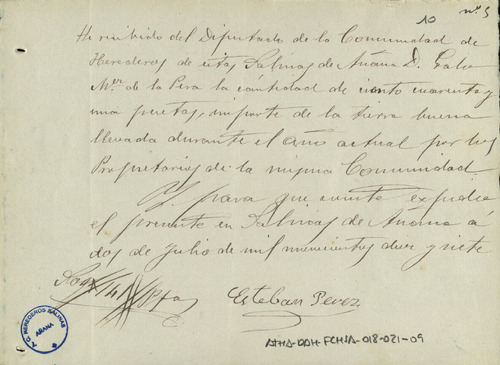 10 nº 5
He recibido del Diputado de la Comunidad de
Herederos de estas Salinas de Añana D. Galo
Mªr de la Pera la cantidad de ciento cuarenta y
una pesetas, importe de la tierra buena
llevada durante el año actual por los
Propietarios de la misma Comunidad.
Y para que conste expido
el presente en Salinas de Añana á
dos de Julio de mil novecientos diez y siete
Son 141 Ptas
Esteban Perez
A.C. HEREDEROS SALINAS
AÑANA
ATHA-DAH-FCHSA-018-021-09